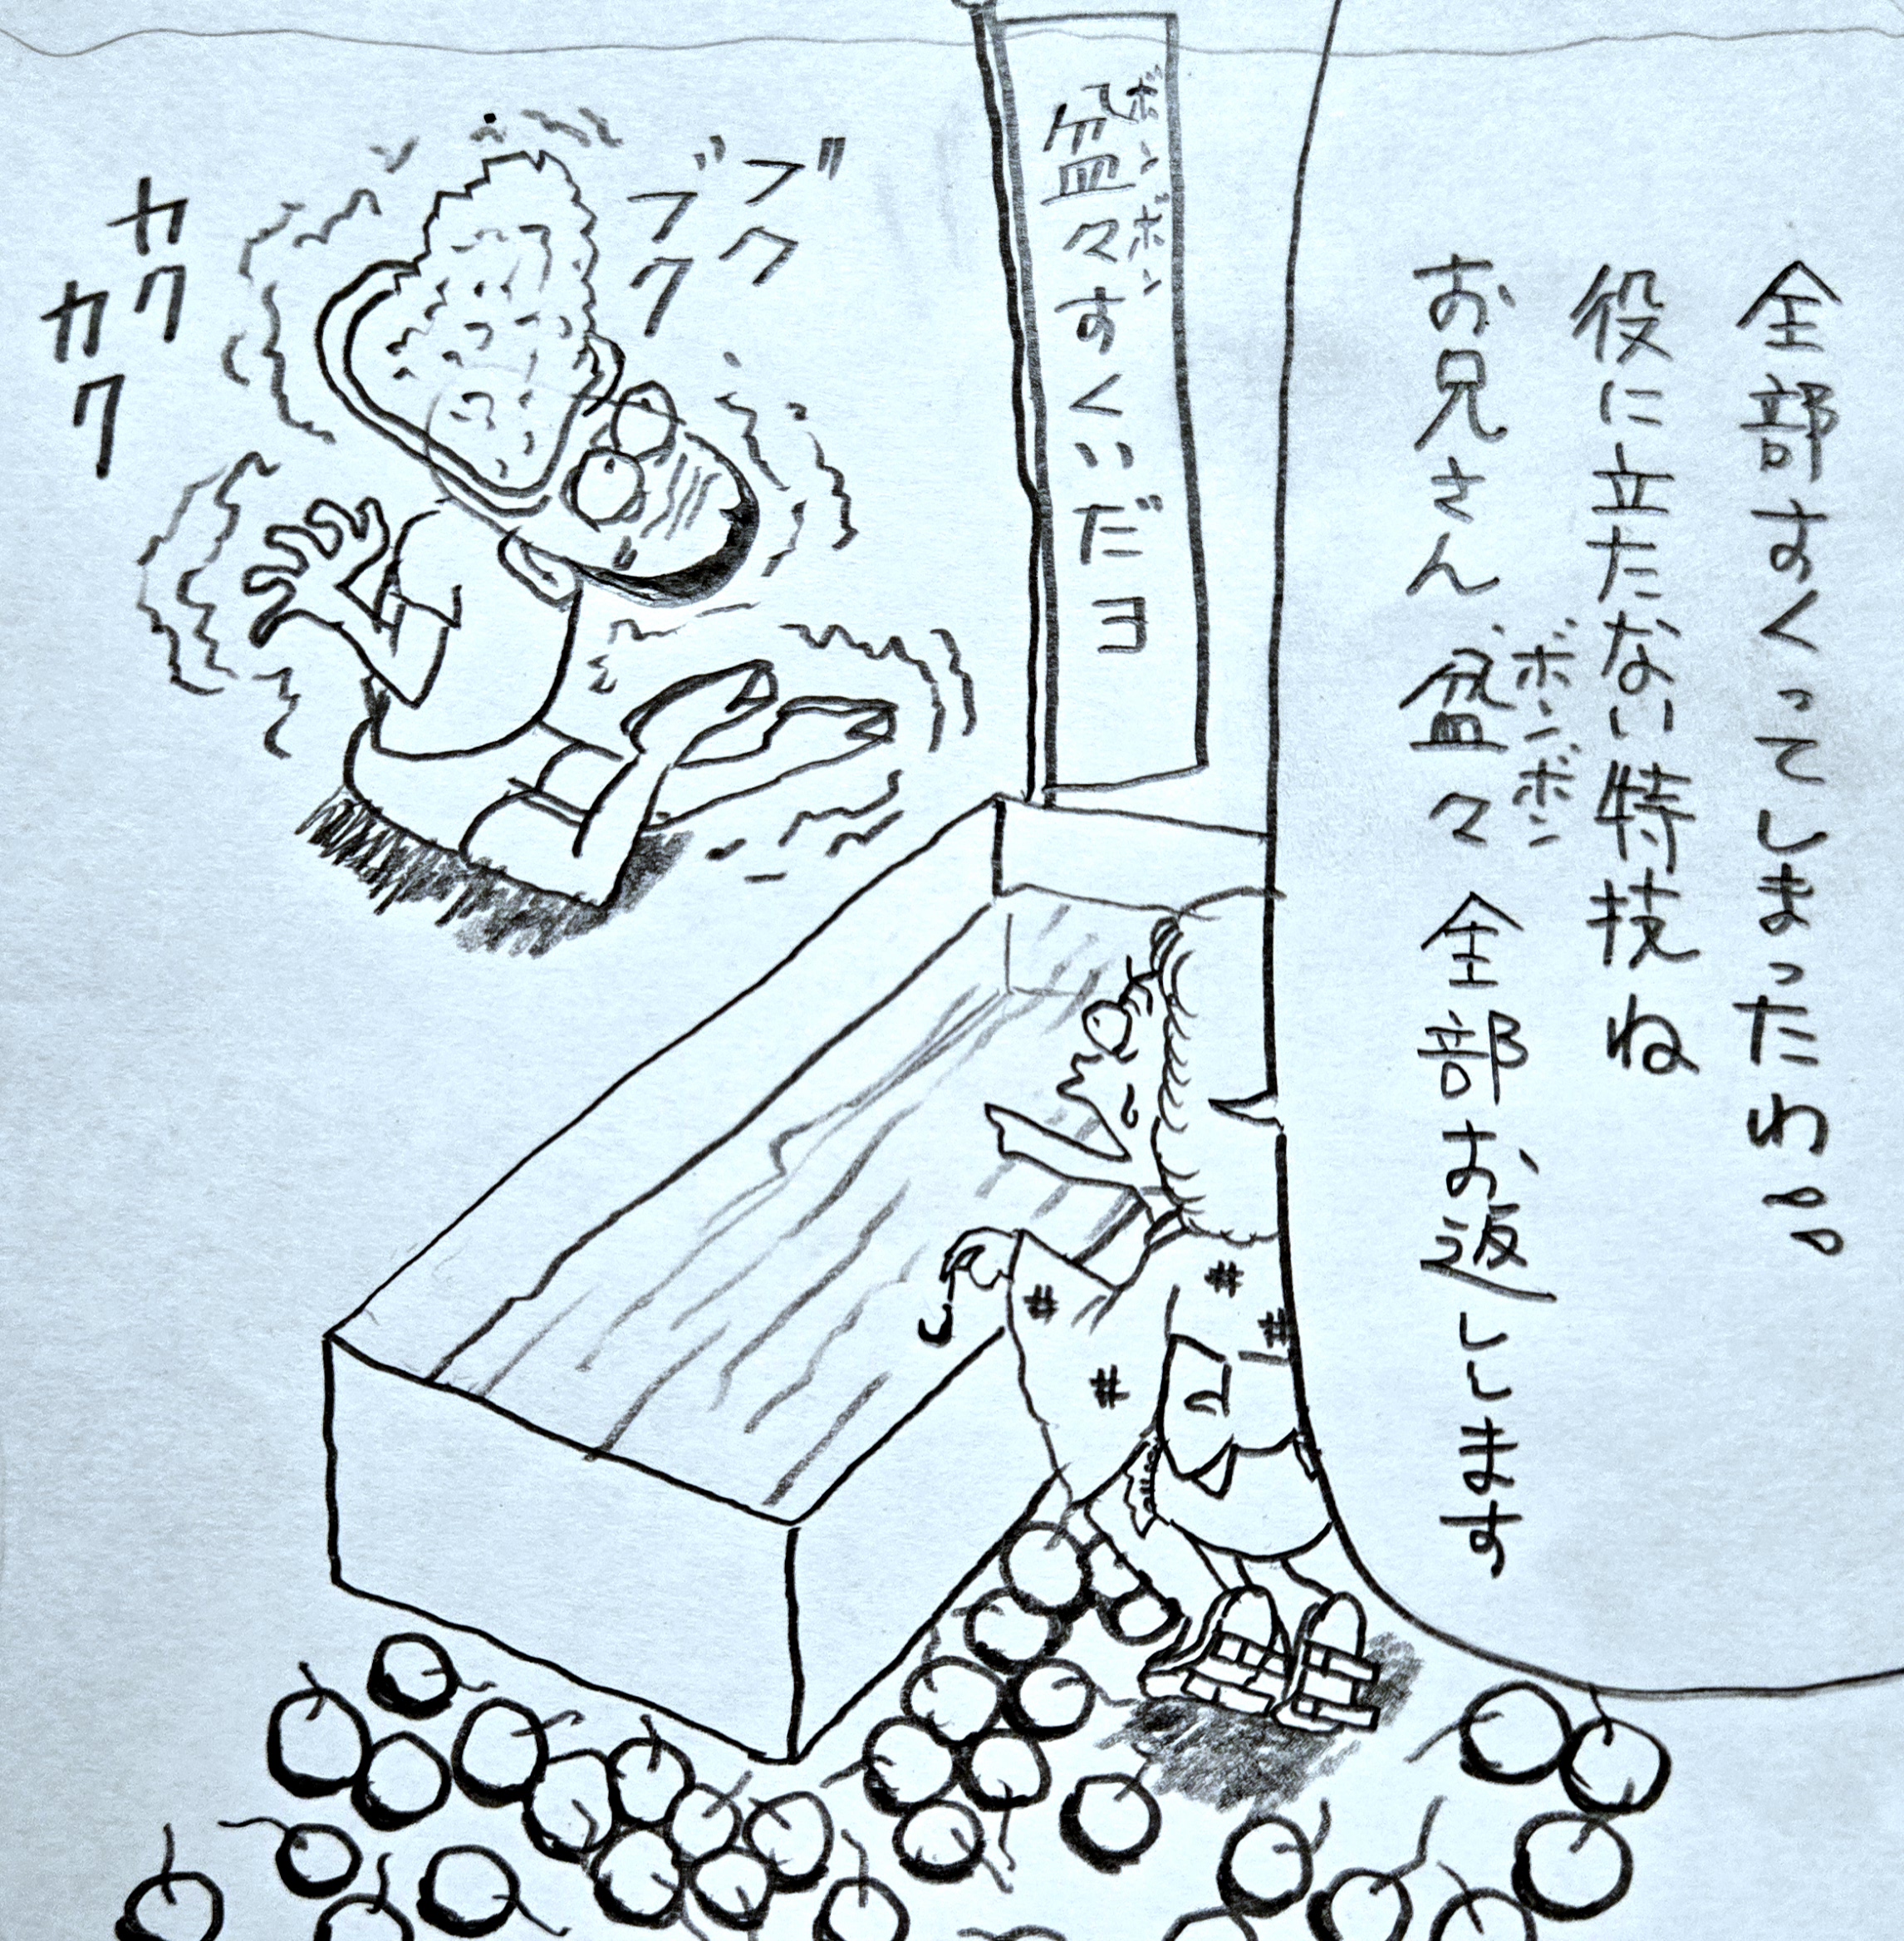 全部すくってしまったわ
役に立たない特技ね
お兄さん盆々全部お返しします
ボンボン
盆々すくいだヨ
ボンボン
ブク
ブク
カク
カク